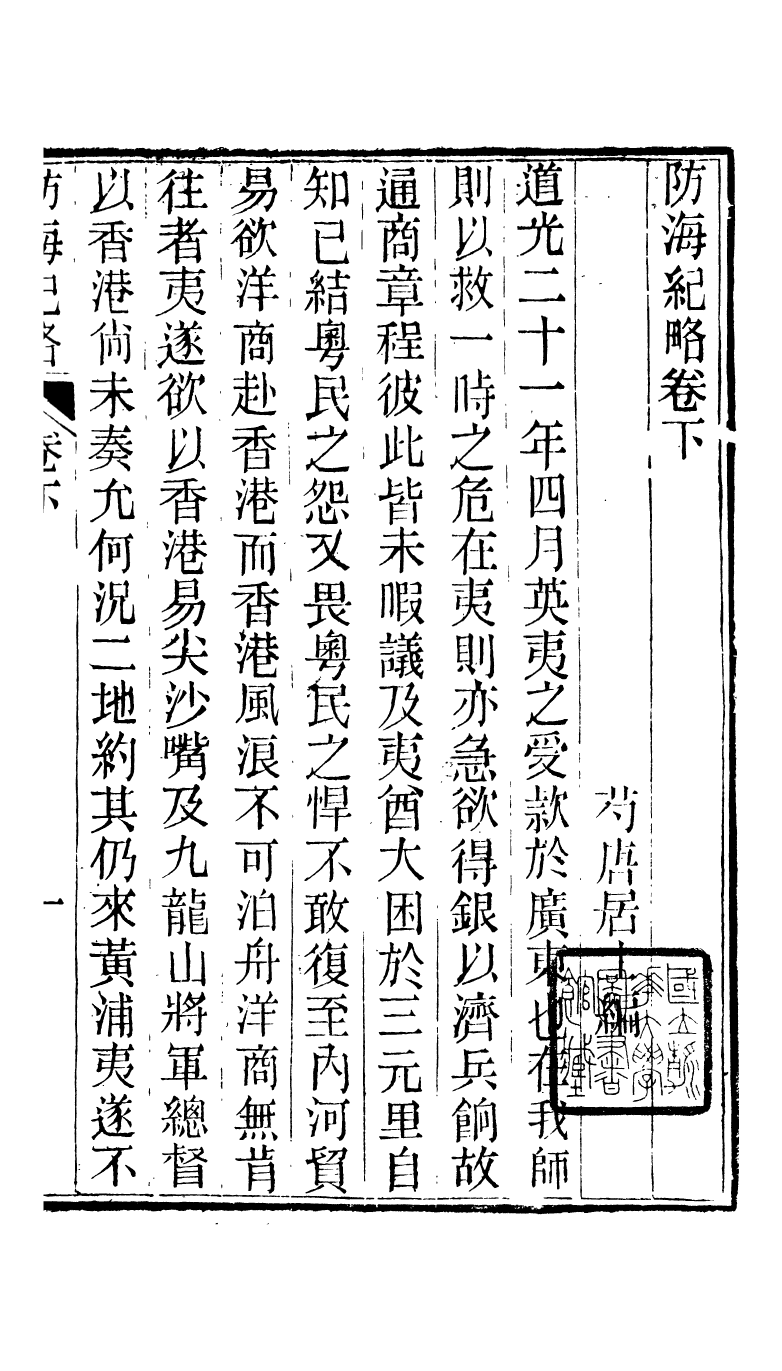 防海紀略卷下
芍唐居士編
道光二十一年四月英夷之受款於廣東也在我師
則以救一時之危在夷則亦急欲得銀以濟兵餉故
通商章程彼此皆未暇議及夷酋大困於三元里自
知已結粵民之怨又畏粵民之悍不敢復至內河貿
易欲洋商赴香港而香港風浪不可泊舟洋商無肯
往者夷遂欲以香港易尖沙嘴及九龍山將軍總督
以香港尙未奏允何況二地約其仍來黃浦夷遂不
防海紀略 卷下 一
國立
大學
圖書
館藏